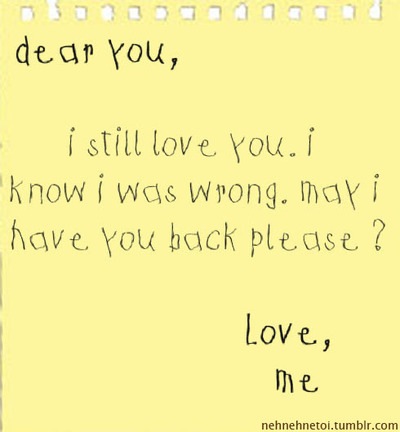 dear you,
i still love you. i
know i was wrong. may i
have you back please ?
Love,
me
nehnehnetoi.tumblr.com